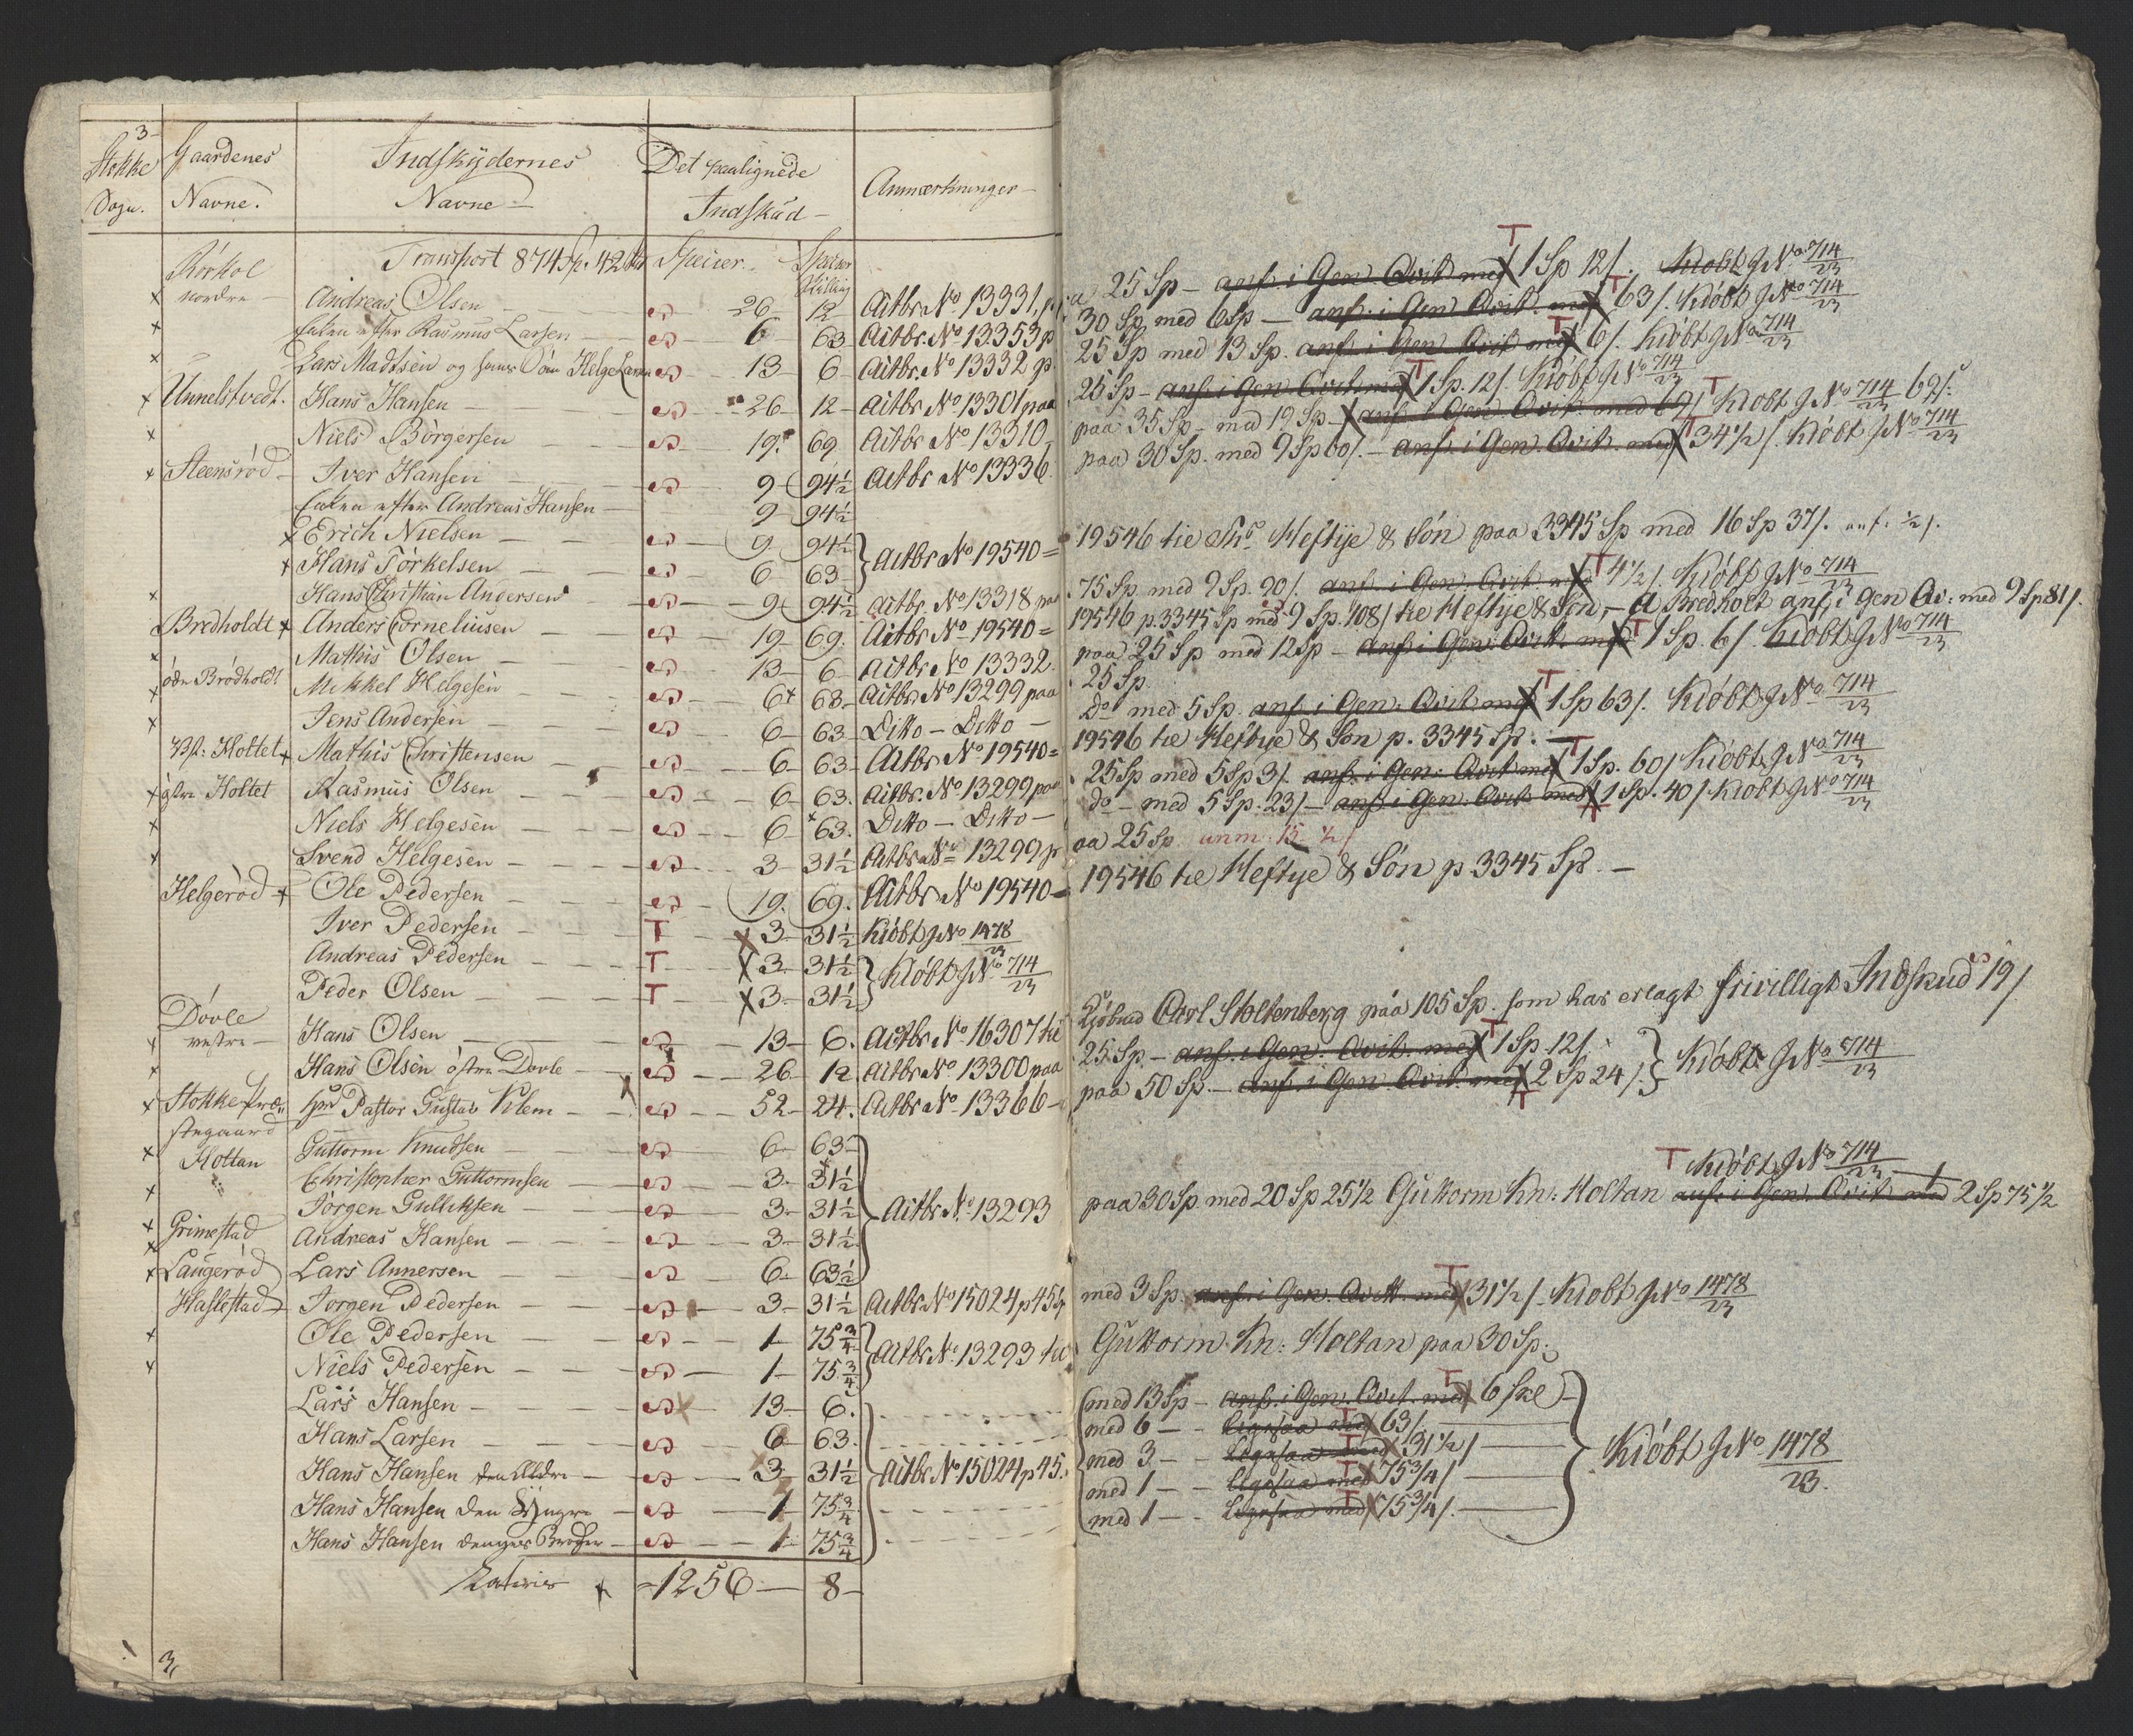 3
Stokke Sogn. Gaardenes Navne. Indskÿdernes Navne Det paalignede Indskud Anmærkninger
Transport 874 Sp. 42 Specier. Specier Skilling
nordre Andreas Olsen 26 12 Actbr No 13331, a 25 Sp anf. i Gen. Qvit med 1 Sp 12/. Kiøbt J No 714/23
Enken efter Rasmus Larsen 6 63 Actbr. No 13353 p 30 Sp med 6 Sp anf. i Gen Qvit. med 63/. Kiøbt J No 714/23
Lars Madtsen og hans Søn Helge Larsen 13 6 Actbr. No 13332 p. 25 Sp med 13 Sp. anf. i Gen Qvit med 6/. Kiøbt J No 714/23
Unnelstvedt. Hans Hansen 26 12 Actbr No 13301 paa 25 Sp anf. i Gen. Qvit. med 1 Sp. 12/. Kiøbt J No 714/23
Niels Børgersen 19 69 Actbr No 13310 paa 35 Sp med 19 Sp anf. i Gen. Qvit med 69/ Kiobt J No 714/23 69/.
Steensrød Iver Hansen 9 94½ Actbr No 13336. paa 30 Sp. med 9 Sp 60/. anf. i Gen. Qvit. med 34½/. Kiøbt J No 714/23
Enken efter Andreas Hansen 9 94½
Erich Nielsen 9 94½ Actbr No 19540= 19546 tie Ths Heftye & Søn paa 3345 Sp med 16 Sp 37/. anf. ½/.
Hans Torkelsen 6 63
Hans Christian Andersen 9 94½ Actbr. No 13318 paa 75 Sp. med 9 Sp. 90/. anf. i Gen. Qvit. med 4½/. Kiøbt J No 714/23
Bredholdt Anders Corneliusen 19 69. Actbr No 19540= 19546 p. 3345 Sp med 9 Sp. 108/ tie Heftye & Søn, A Bredholt anf. i gen Qv. med 9 Sp 81/.
Mathis Olsen 13 6 Actbr No 13332. paa 25 Sp med 12 Sp anf. i Gen. Qvit. med 1 Sp. 6/. Kiøbt J No 714/23
Mikkel Helgesen 6 63 Actbr No 13299 paa 25 Sp.
Jens Andersen 6 63 Ditto Ditto do med 5 Sp. anf. i Gen. Qvit med 1 Sp 63/. Kiøbt J No 714/23
Holtet Mathis Christensen 6 63 Actbr No 19540= 19546 tie Heftye & Søn p. 3345 Sp.
østre Holtet Rasmus Olsen 6 63. Actbr. No 13299 paa 25 Sp med 5 Sp 3/. anf. i Gen. Qvit med 1 Sp. 60/ Kiøbt J No 714/23
Niels Helgesen 6 63. Ditto Ditto do med 5 Sp. 23/ anf. i Gen. Qvit med 1 Sp. 40/. Kiobt J No 714/23
Svend Helgesen 3 31½ Actbr No 13299 p aa 25 Sp anm. 15 ½/
Helgerød Ole Pedersen 19. 69. Actbr No 19540= 19546 tie Heftye & Søn p 3345 Sp.
Iver Pedersen T 3 31½ Kiøbt J No 1478/23
Andreas Pedersen T 3 31½ Kiøbt J No 714/23
Peder Olsen T 3 31½
Døvle vestre Hans Olsen 13 6. Actbr No 16307 tie Kjøbmd Carl Stoltenberg paa 105 Sp. som har erlagt frivilligt Indskud 19/
Hans Olsen østre Dovle 26 12 Actbr No 13300 paa 25 Sp. anf. i Gen. Qvit. med 1 Sp 12/.
Stokke Præstegaard Hr Pastor Gustav Vilem 52 24. Actbr No 13366 paa 50 Sp. anf. i Gen. Qvit. med 2 Sp 24/. Kiøbt J No 714/23
Holtan Guttorm Knudsen 6 63
Christopher Guttormsen 3 31½ T Kiøbt J No 714/23
Jørgen Gulliksen 3 31½ Actbr No 13293 paa 30 Sp. med 20 Sp 25½ Guttorm Kn: Holtan anf. i Gen. Qvit med 2 Sp 75½
Grimestad Andreas Hansen 3 31½
Laugerød Lars Annersen 6 63½
Haslestad Jørgen Pedersen 3 31½ Actbr No 15024 p 45 Sp med 3 Sp anf. i Gen. Qvitt. med 31½/. Kiobt J No 1478/23
Ole Pedersen 1 75¾ Actbr No 13293 tie Guttorm Kn: Holtan paa 30 Sp.
Niels Pedersen 1 75¾
Lars Hansen 13 6. med 13 Sp anf. i Gen. Qvit. med 6 Skl
Hans Larsen 6 63. med 6 ligesaa med 63/.
Hans Hansen den Eldre 3 31½ Actbr No 15024 p 45. med 3 ligesaa med 31½/ Kiøbt J No 1478/23.
Hans Hansen den Yngre 1 75¾ med 1 ligesaa med 75¾/
Hans Hansen dennes Broder 1 75¾ med 1 ligesaa med 75¾/.
Lateris 1256 8
3